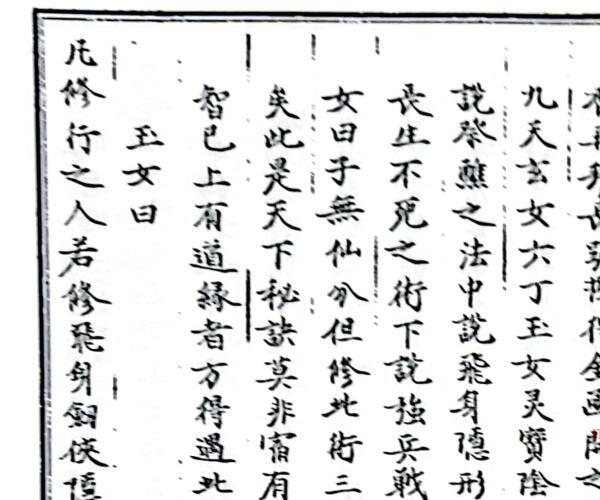 九天玄女六丁玉女灵寶陰
說祭醮之法中說飛身隱形
長生不死之術下說強兵戰
女曰子無仙分但修此術三
矣此是天下秘訣莫非宿有
智已上有道緣者方得遇此
玉女曰
凡修行之人若修飛身劒俠隱